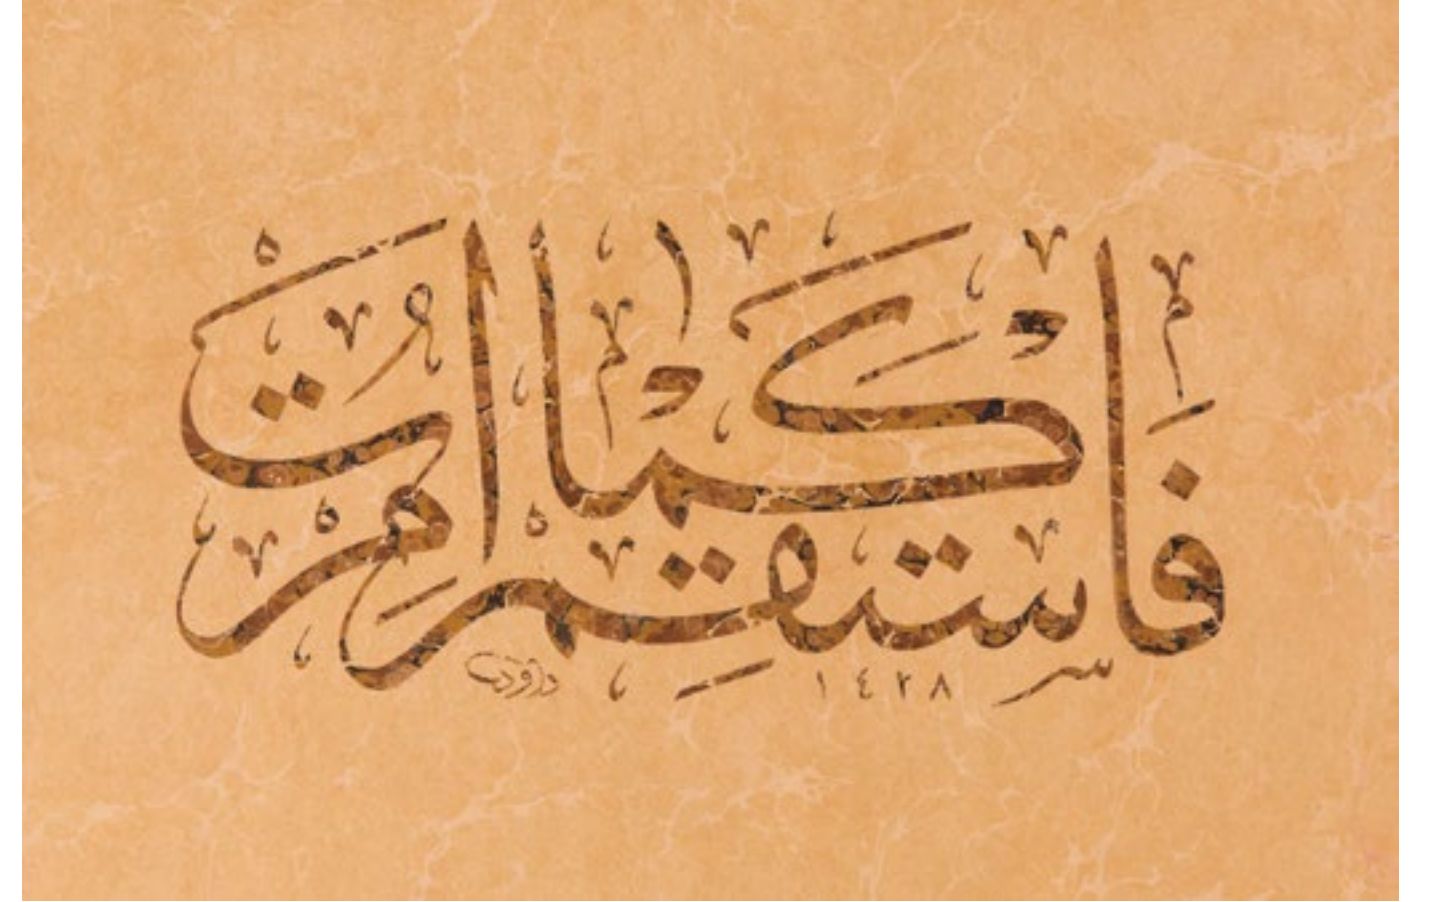 فَاسْتَقِمْ كَمَا أُمِرْتَ
داود ١٤٢٨